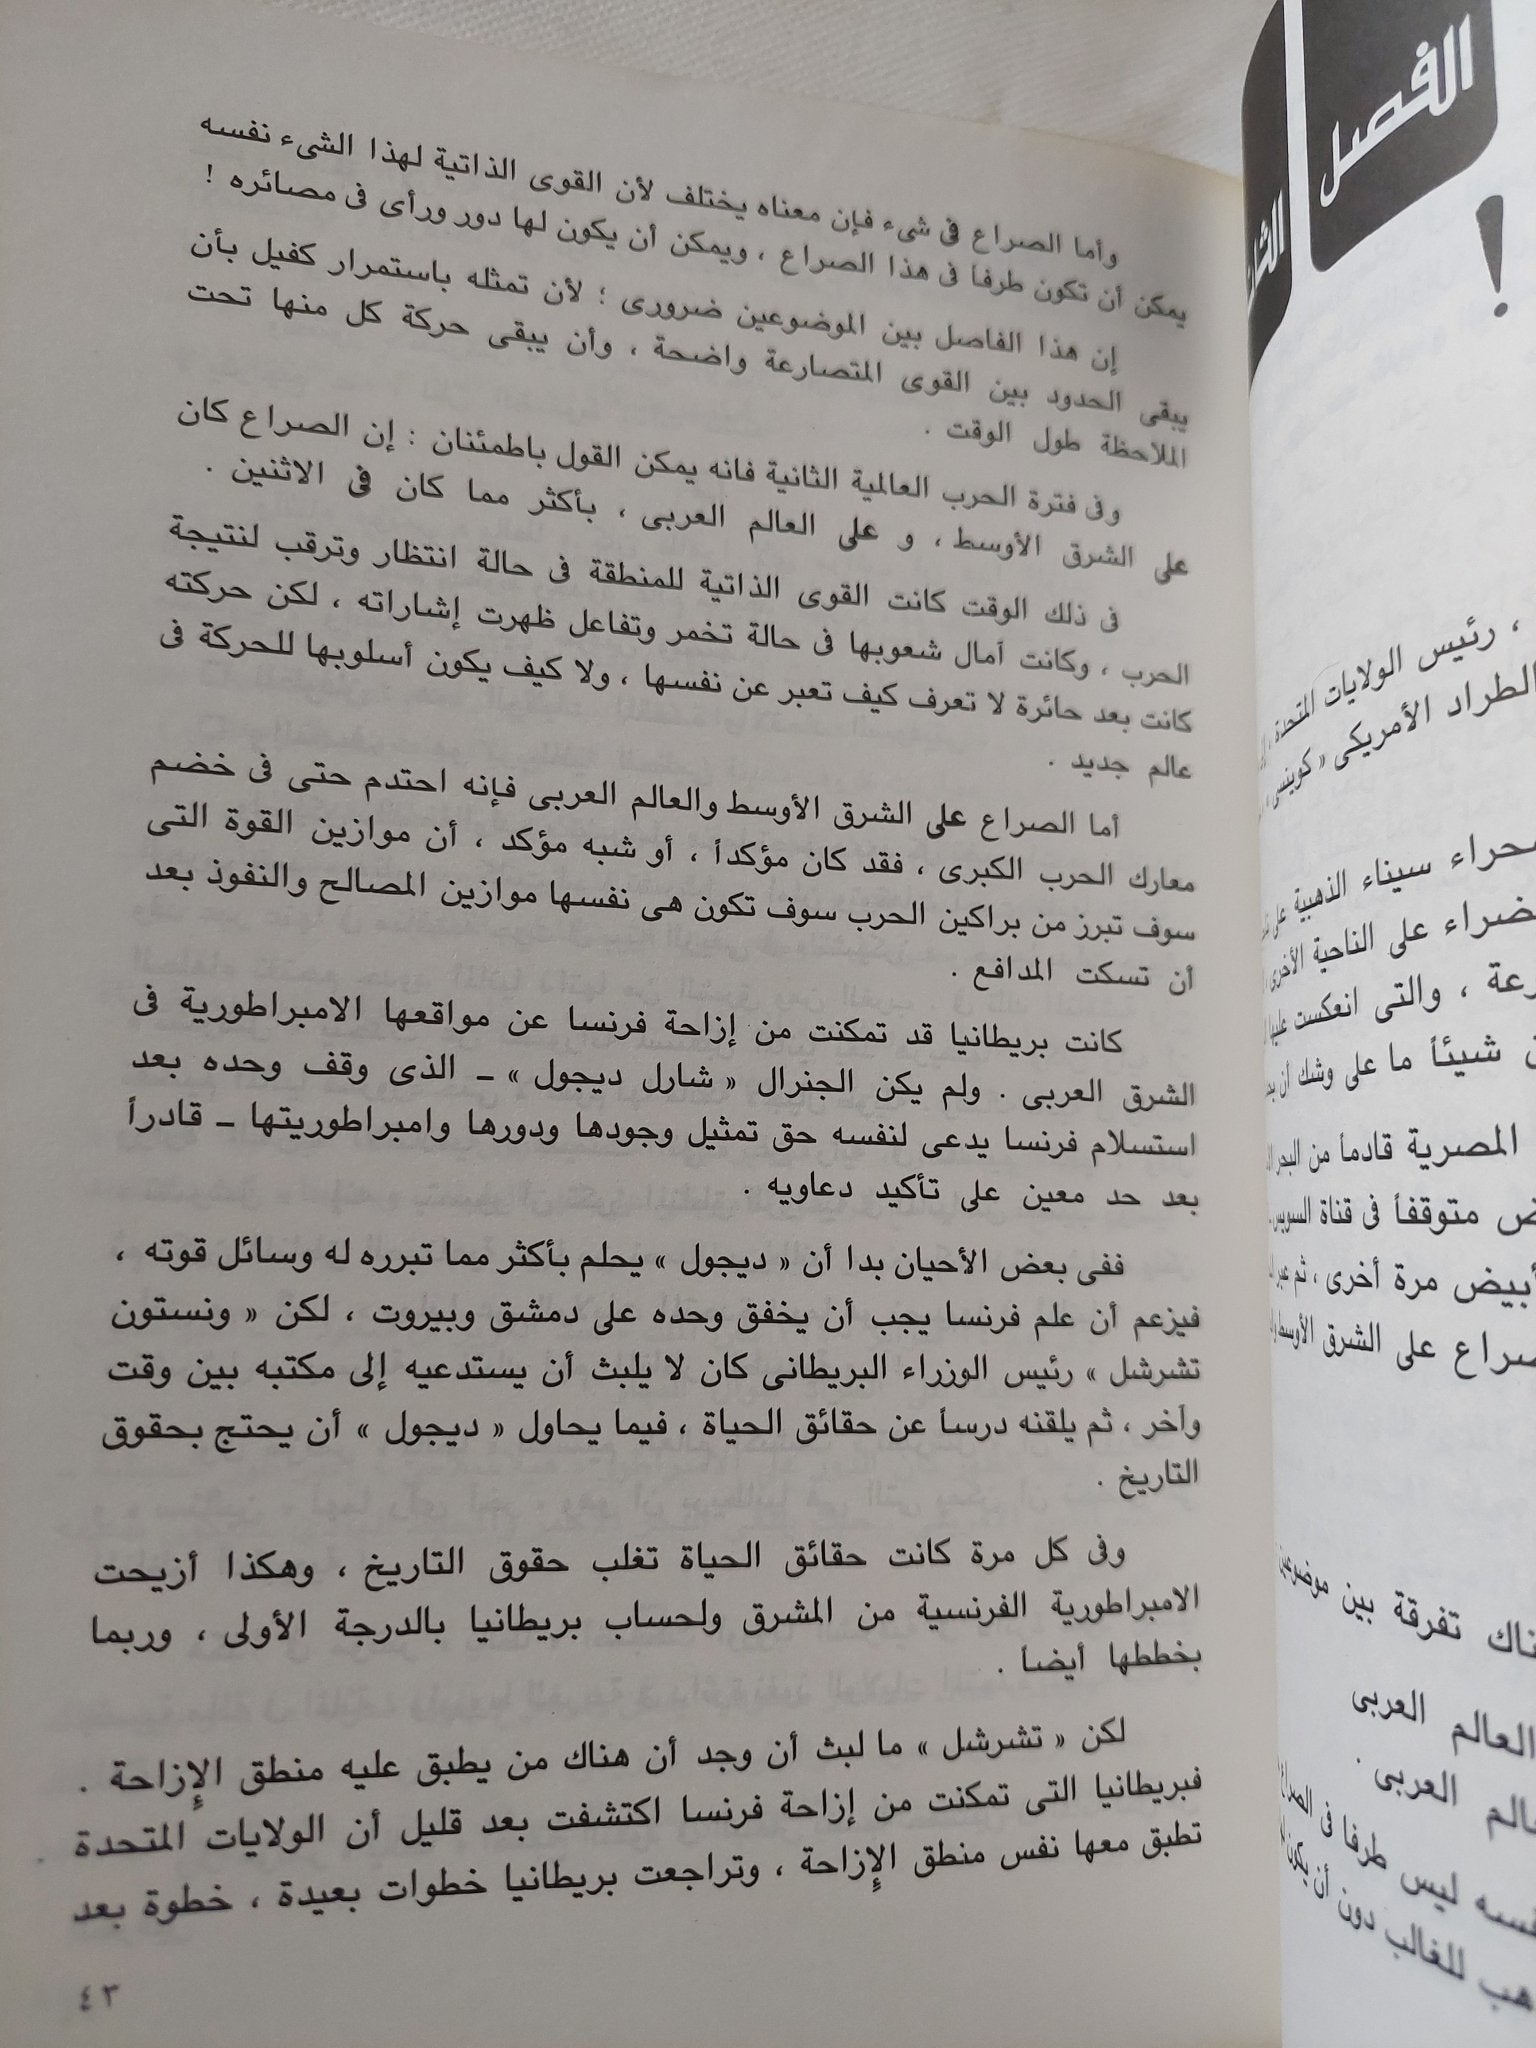 الفصل
!
، رئيس الولايات المتحدة
الطراد الأمريكى « كوينسى
سيناء الذهبية على
على الناحية الأخرى
، والتى انعكست عليها
شيئاً ما على وشك أن
المصرية قادماً من البحر
متوقفاً فى قناة السويس
مرة أخرى ، ثم عبر
على الشرق الأوسط
تفرقة بين موضوعين
العالم العربى
العربى .
ليس طرفا فى
للغالب دون أن يكون
وأما الصراع فى شىء فإن معناه يختلف لأن القوى الذاتية لهذا الشىء نفسه
يمكن أن تكون طرفاً فى هذا الصراع ، ويمكن أن يكون لها دور ورأى فى مصائره !
إن هذا الفاصل بين الموضوعين ضرورى ؛ لأن تمثله باستمرار كفيل بأن
يبقى الحدود بين القوى المتصارعة واضحة ، وأن يبقى حركة كل منها تحت
الملاحظة طول الوقت .
وفى فترة الحرب العالمية الثانية فانه يمكن القول باطمئنان : إن الصراع كان
على الشرق الأوسط ، و على العالم العربى ، بأكثر مما كان فى الاثنين .
فى ذلك الوقت كانت القوى الذاتية للمنطقة فى حالة انتظار وترقب لنتيجة
الحرب ، وكانت آمال شعوبها فى حالة تخمر وتفاعل ظهرت إشاراته ، لكن حركته
كانت بعد حائرة لا تعرف كيف تعبر عن نفسها ، ولا كيف يكون أسلوبها للحركة فى
عالم جديد .
أما الصراع على الشرق الأوسط والعالم العربى فإنه احتدم حتى فى خضم
معارك الحرب الكبرى ، فقد كان مؤكداً ، أو شبه مؤكد ، أن موازين القوة التى
سوف تبرز من براكين الحرب سوف تكون هى نفسها موازين المصالح والنفوذ بعد
أن تسكت المدافع .
كانت بريطانيا قد تمكنت من إزاحة فرنسا عن مواقعها الامبراطورية فى
الشرق العربى . ولم يكن الجنرال « شارل ديجول » ـ الذى وقف وحده بعد
استسلام فرنسا يدعى لنفسه حق تمثيل وجودها ودورها وامبراطوريتها ـ قادراً
بعد حد معين على تأكيد دعاويه .
ففى بعض الأحيان بدا أن « ديجول » يحلم بأكثر مما تبرره له وسائل قوته ،
فيزعم أن علم فرنسا يجب أن يخفق وحده على دمشق وبيروت ، لكن « ونستون
تشرشل » رئيس الوزراء البريطانى كان لا يلبث أن يستدعيه إلى مكتبه بين وقت
وآخر ، ثم يلقنه درساً عن حقائق الحياة ، فيما يحاول « ديجول » أن يحتج بحقوق
التاريخ .
وفى كل مرة كانت حقائق الحياة تغلب حقوق التاريخ ، وهكذا أزيحت
الامبراطورية الفرنسية من المشرق ولحساب بريطانيا بالدرجة الأولى ، وربما
بخططها أيضاً .
لكن « تشرشل » ما لبث أن وجد أن هناك من يطبق عليه منطق الإزاحة .
فبريطانيا التى تمكنت من إزاحة فرنسا اكتشفت بعد قليل أن الولايات المتحدة
تطبق معها نفس منطق الإزاحة ، وتراجعت بريطانيا خطوات بعيدة ، خطوة بعد
٤٣